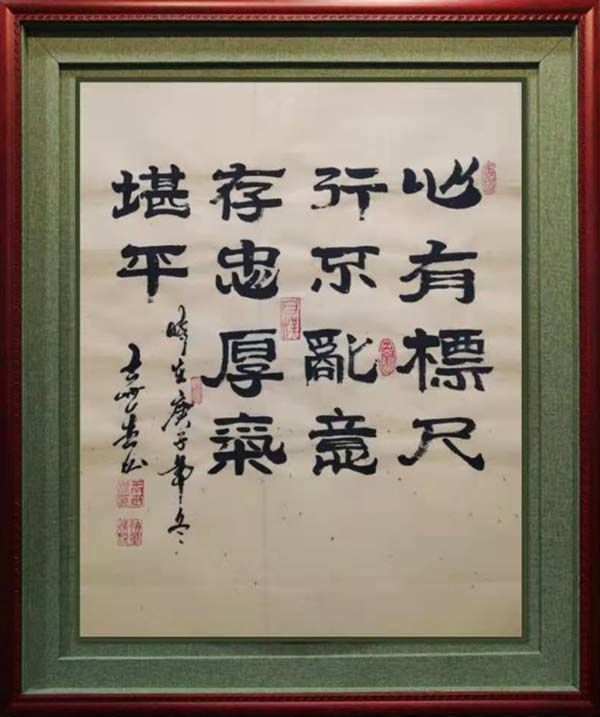 心有標尺
行不亂意
存忠厚氣
堪平
時在庚子年冬